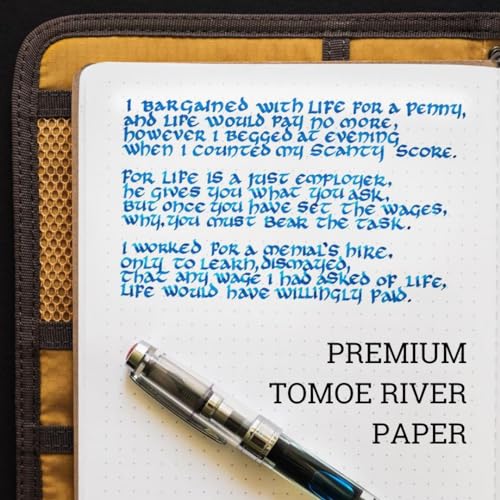 I BARGAINED WITH LIFE FOR A PENNY,
AND LIFE WOULD PAY NO MORE,
HOWEVER I BEGGED AT EVENING
WHEN I COUNTED MY SCANTY SCORE.
FOR LIFE IS A JUST EMPLOYER,
HE GIVES YOU WHAT YOU ASK,
BUT ONCE YOU HAVE SET THE WAGES,
WHY, YOU MUST BEAR THE TASK.
I WORKED FOR A MENIAL'S HIRE,
ONLY TO LEARN, DISMAYED,
THAT ANY WAGE I HAD ASKED OF LIFE,
LIFE WOULD HAVE WILLINGLY PAID.
PREMIUM
TOMOE RIVER
PAPER